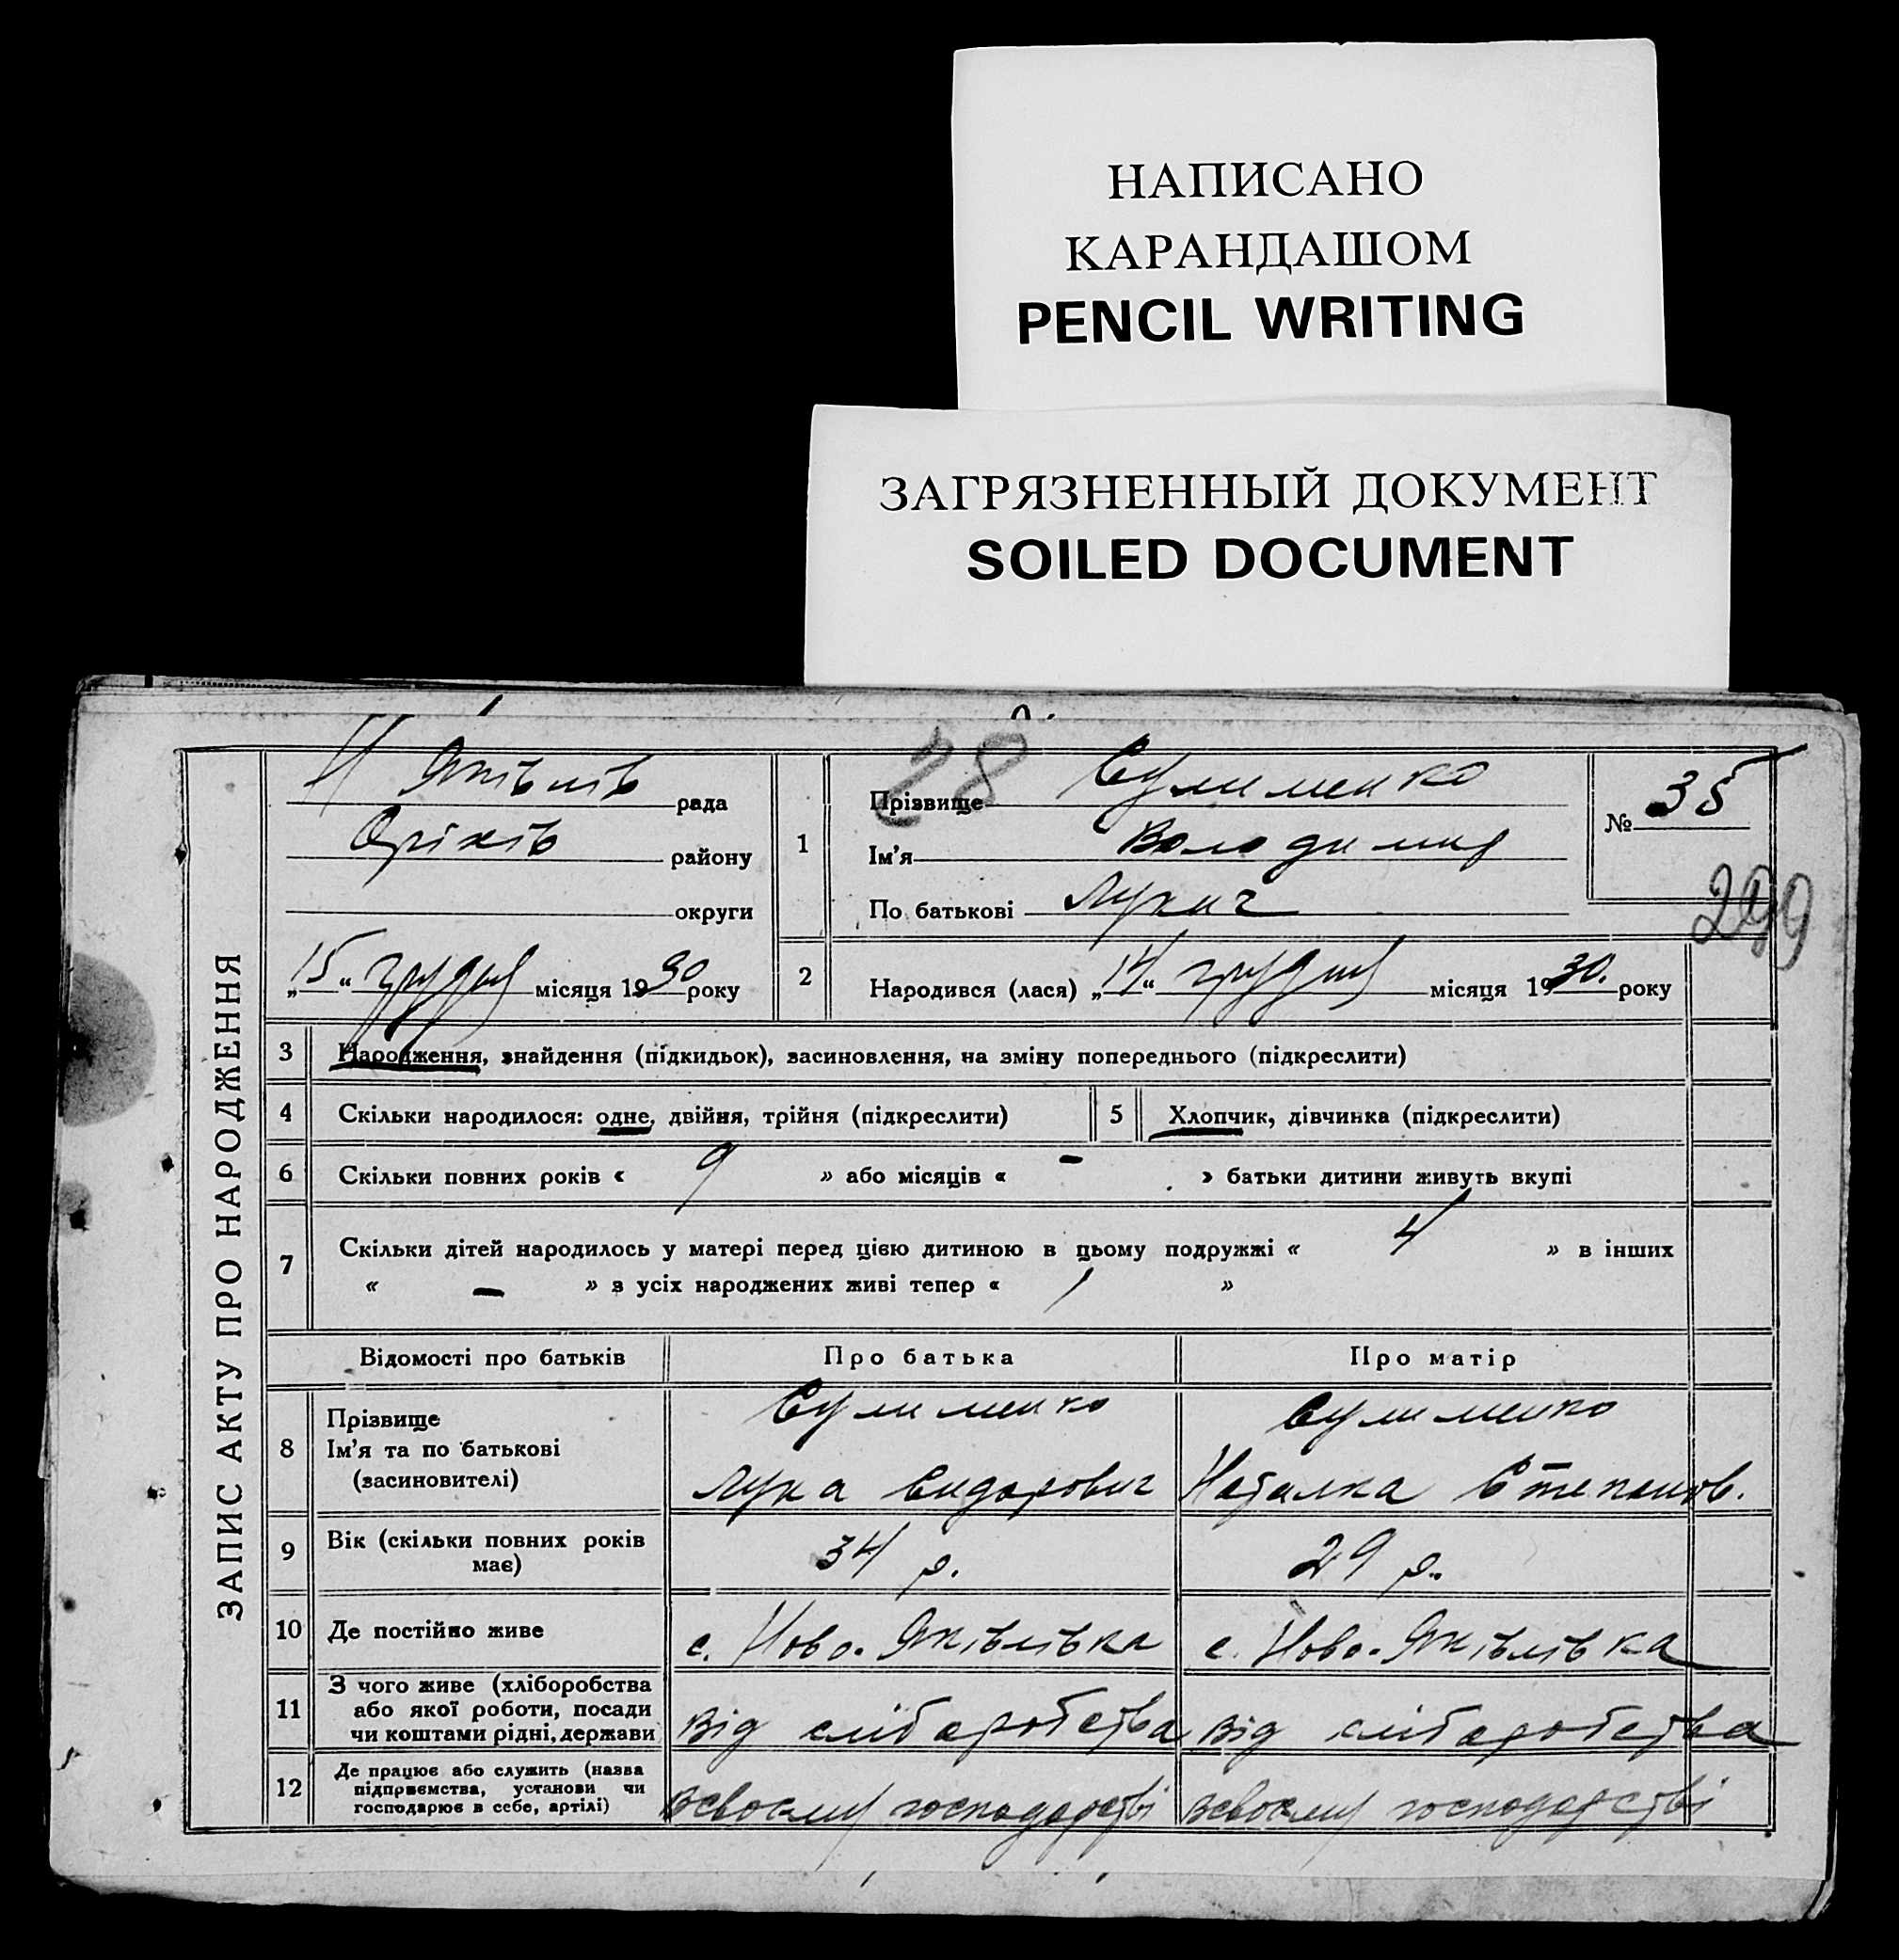 НАПИСАНО
КАРАНДАШОМ
PENCIL WRITING
ЗАГРЯЗНЕННЫЙ ДОКУМЕНТ
SOILED DOCUMENT
ЗАПИС АКТУ ПРО НАРОДЖЕННЯ
Н Яківлів рада
Оріхів району
округи
„15“ грудня місяця 1930 року
28
1 Прізвище Сулименко
Ім'я Володимир
По батькові Лукич
№ 35
299
2 Народився (лася) „14“ грудня місяця 1930. року
3 Народження, знайдення (підкидьок), засиновлення, на зміну попереднього (підкреслити)
4 Скільки народилося: одне, двійня, трійня (підкреслити) 5 Хлопчик, дівчинка (підкреслити)
6 Скільки повних років « 9 » або місяців « - » батьки дитини живуть вкупі
7 Скільки дітей народилось у матері перед цією дитиною в цьому подружжі « 4 » в інших
« - » з усіх народжених живі тепер « 1 »
Відомості про батьків Про батька Про матір
8 Прізвище Сулименко Сулименко
Ім'я та по батькові
(засиновителі) Лука Сидорович Наталка Степанов.
9 Вік (скільки повних років
має) 34 р. 29 р.
10 Де постійно живе с. Ново-Яківлівка с. Ново-Яківлівка
11 З чого живе (хліборобства
або якої роботи, посади
чи коштами рідні, держави від хліборобства від хліборобства
12 Де працює або служить (назва
підприємства, установи чи
господарює в себе, артілі) всвоєму господарстві всвоєму господарстві